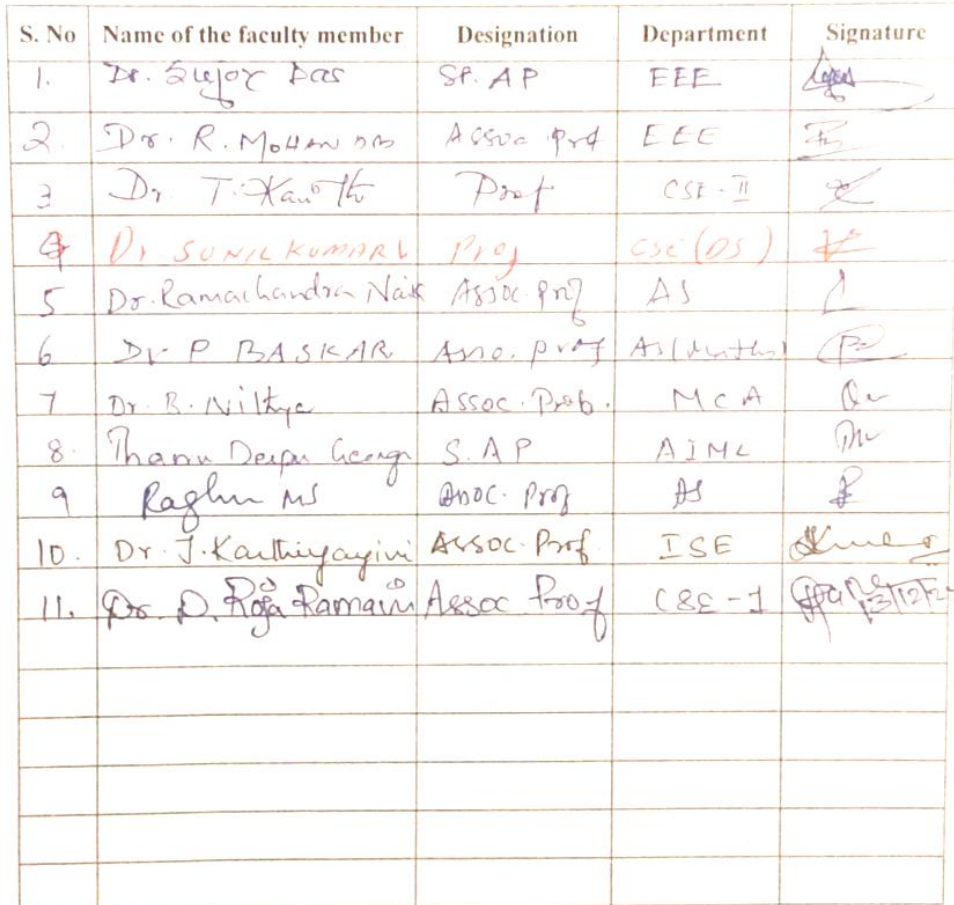 S. No Name of the faculty member Designation Department Signature
1. Dr. Sujoy Das Sr. AP EEE
2. Dr. R. MOHAN DAS Assoc. Prof EEE
3 Dr. T. Prof CSE-II
4 Dr SUNIL KUMAR V Prof CSE (DS)
5 Dr. Ramachandra Naik Assoc. Prof AS
6 Dr P BASKAR Asso. Prof AS (Maths)
7 Dr. B. Nithya Assoc. Prof. MCA
8. Deepu George S. AP AIML
9 Raghu MS Assoc. Prof AS
10. Dr. J. Karthiyayini Assoc. Prof. ISE
11. Dr. D. Roja Ramani Assoc Prof CSE-1